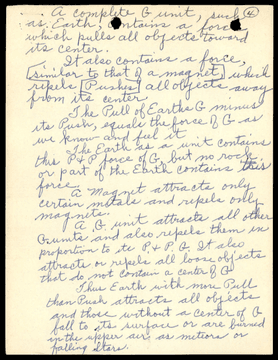 A complete G unit such (4)
as, Earth, contains a force
which pulls all objects toward
its center.
It also contains a force,
similar to that of a magnet, which
repels [Pushes] all objects away
from its center
The Pull of Earths G minus
its Push, equals the force of G as
we know and feel it
The Earth as a unit contains
this P & P force of G, but no rock
or part of the Earth contains this
force.
A Magnet attracts only
certain metals and repels only
magnets.
A G unit attracts all other
G units and also repels them in
proportion to its P & P G. It also
attracts or repels all loose objects
that do not contain a center of G
Thus Earth with more Pull
than Push attracts all objects
and those without a Center of G
fall to its surface or are burned
in the upper air, as meteors or
falling stars.